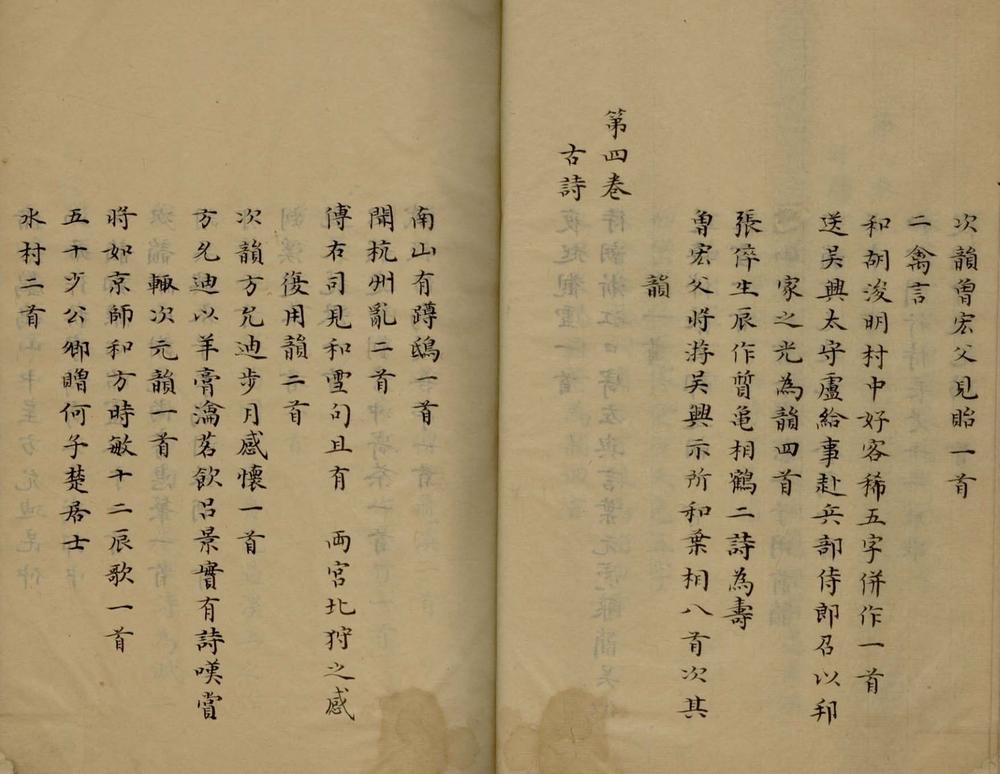 次韻曾宏父見貽一首
二禽言一首
和胡浚明村中好客稀五字併作一首
送吳興太守盧給事赴兵部侍郎召以邦
家之光為韻四首
張倅生辰作質龜相鶴二詩為壽
曾宏父將游吳興示所和葉相八首次其
韻
第四卷
古詩
南山有蹲鴟一首
聞杭州亂二首
傅右司見和雪句且有 兩宮北狩之感
復用韻二首
次韻方允迪步月感懷一首
方允迪以羊膏瀹茗飲呂景實有詩嘆賞
輒次元韻一首
將如京師和方時敏十二辰歌一首
五十少公卿贈何子楚居士
水村二首